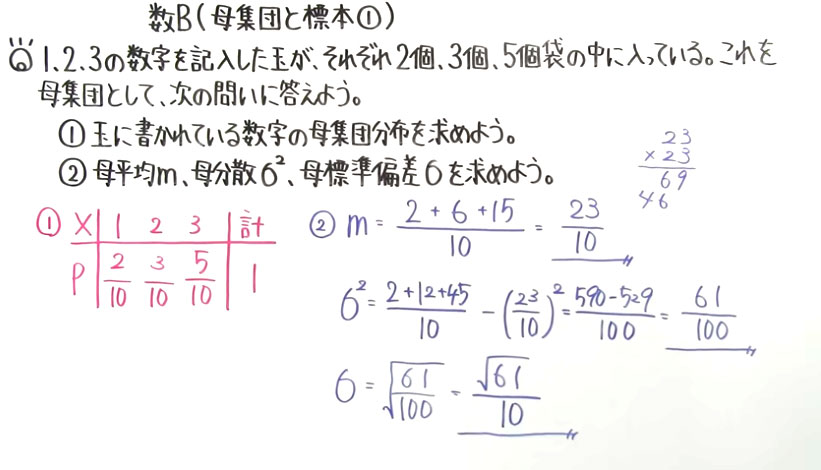 数B(母集団と標本①)
Q 1、2、3の数字を記入した玉が、それぞれ2個、3個、5個袋の中に入っている。これを
母集団として、次の問いに答えよう。
① 玉に書かれている数字の母集団分布を求めよう。
② 母平均m、母分散σ²、母標準偏差σを求めよう。
23
×23
69
46
① X 1 2 3 計
P 2/10 3/10 5/10 1
② m = (2+6+15)/10 = 23/10
σ² = (2+12+45)/10 - (23/10)² = (590-529)/100 = 61/100
σ = √(61/100) = √61/10